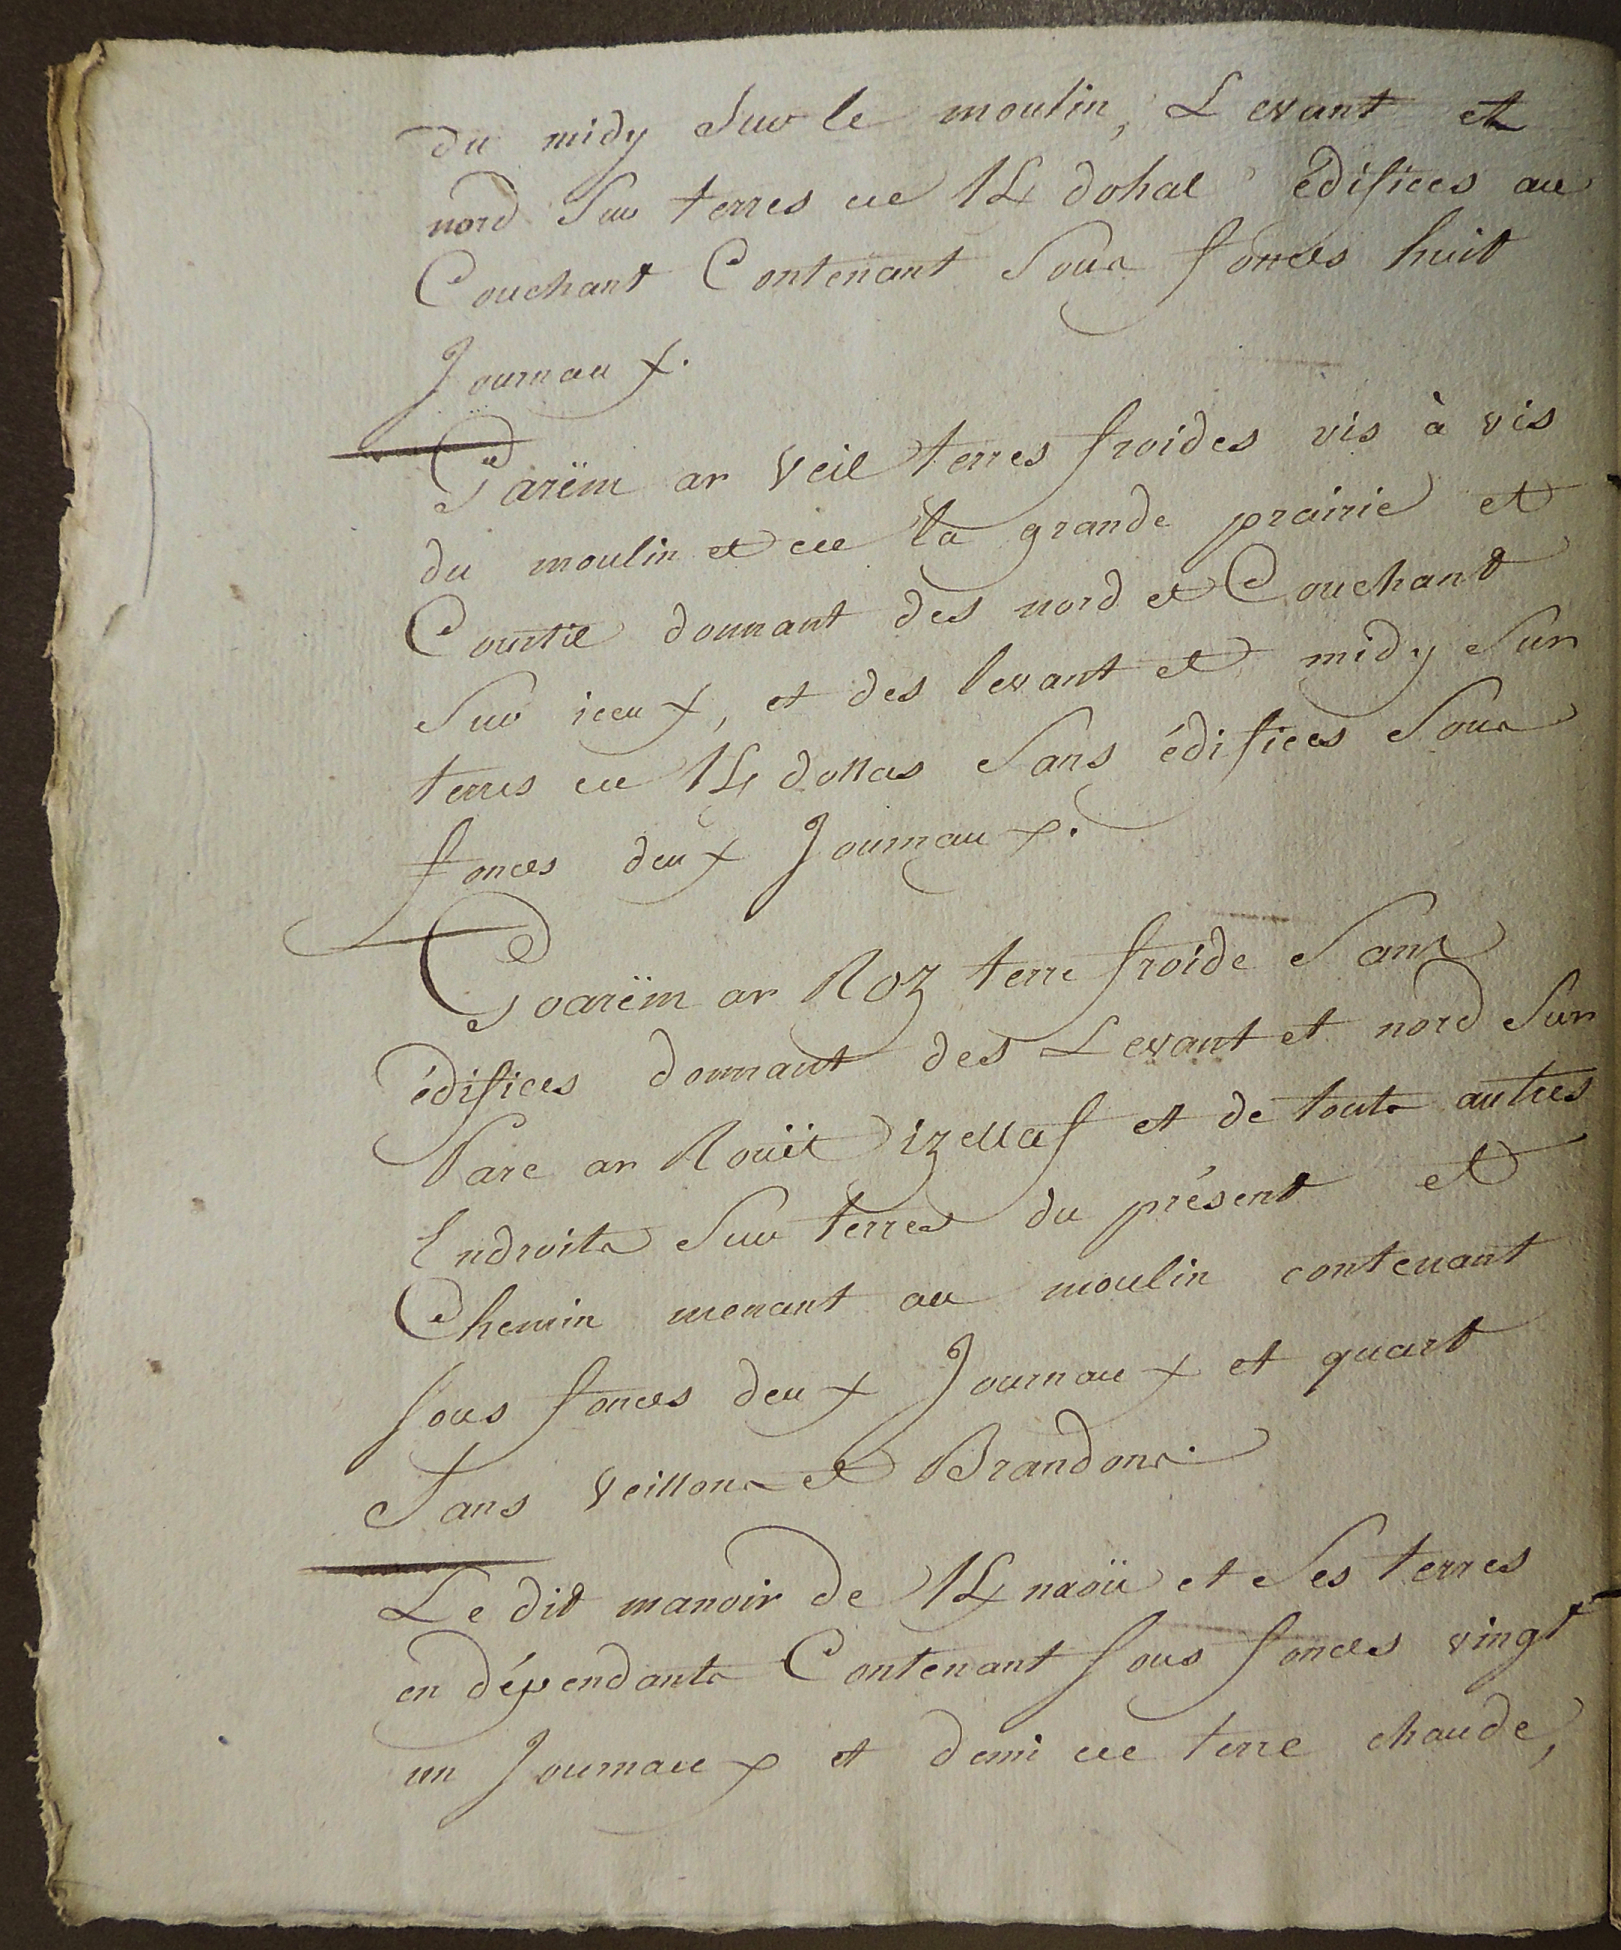 du midy Sur le moulin, Levant et
nord Sur terres de K dohal édifices au
Couchant Contenant Sous fonds huit
Journaux.
Garëm ar Veil terres froides vis à vis
du moulin et de la grande prairie et
Courtil donnant des nord et Couchant
Sur iceux, et des levant et midy Sur
terres de K Sans édifices Sous
fonds deux Journaux.
Goarëm ar Roz terre froide Sans
édifices donnant des Levant et nord Sur
Parc ar Rouït Izellaf et de touts autres
Endroits Sur terres du présent et
Chemin menant au moulin contenant
Sous fonds deux Journaux et quart
Sans Veillons et Brandons.
Le dit manoir de K naoü et Ses terres
en dépendants Contenant Sous fonds vingt
un Journaux et demi de terre chaude,